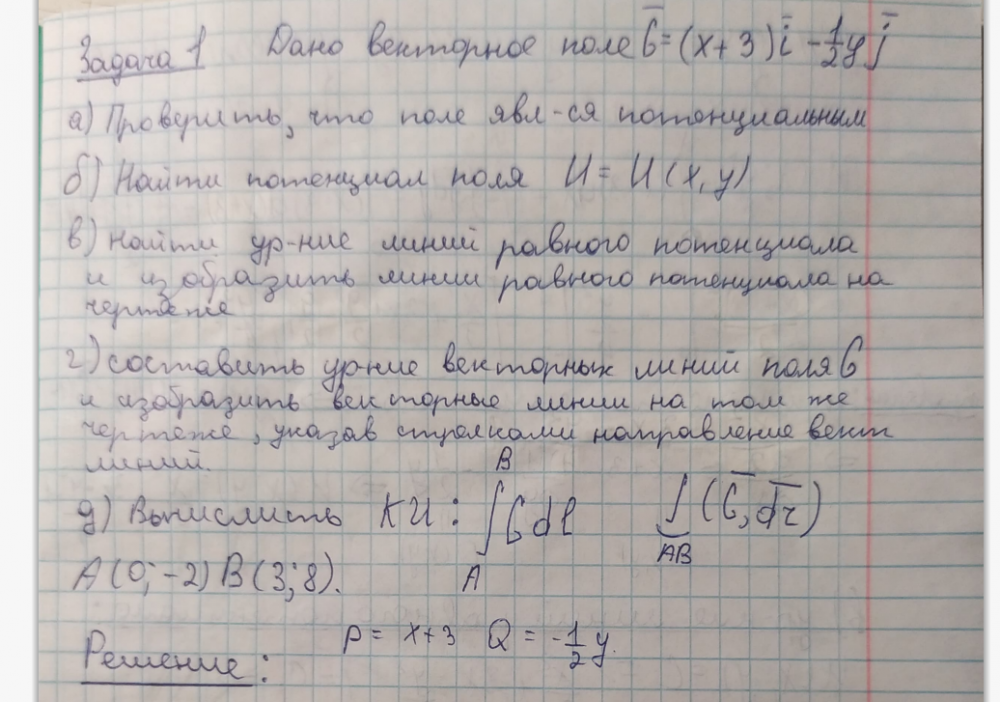 Задача 1 Дано векторное поле G̅ = (x+3) i̅ - 1/2 y j̅
а) Проверить, что поле явл-ся потенциальным
б) Найти потенциал поля U = U(x, y)
в) найти ур-ние линий равного потенциала
и изобразить линии равного потенциала на
чертеже
г) составить ур-ние векторных линий поля G
и изобразить векторные линии на том же
чертеже, указав стрелками направление вект
линий.
д) Вычислить КИ: ∫_A^B G dl ∫_AB (G̅, d̅r̅)
A(0; -2) B(3; 8).
Решение: P = x+3 Q = -1/2 y.